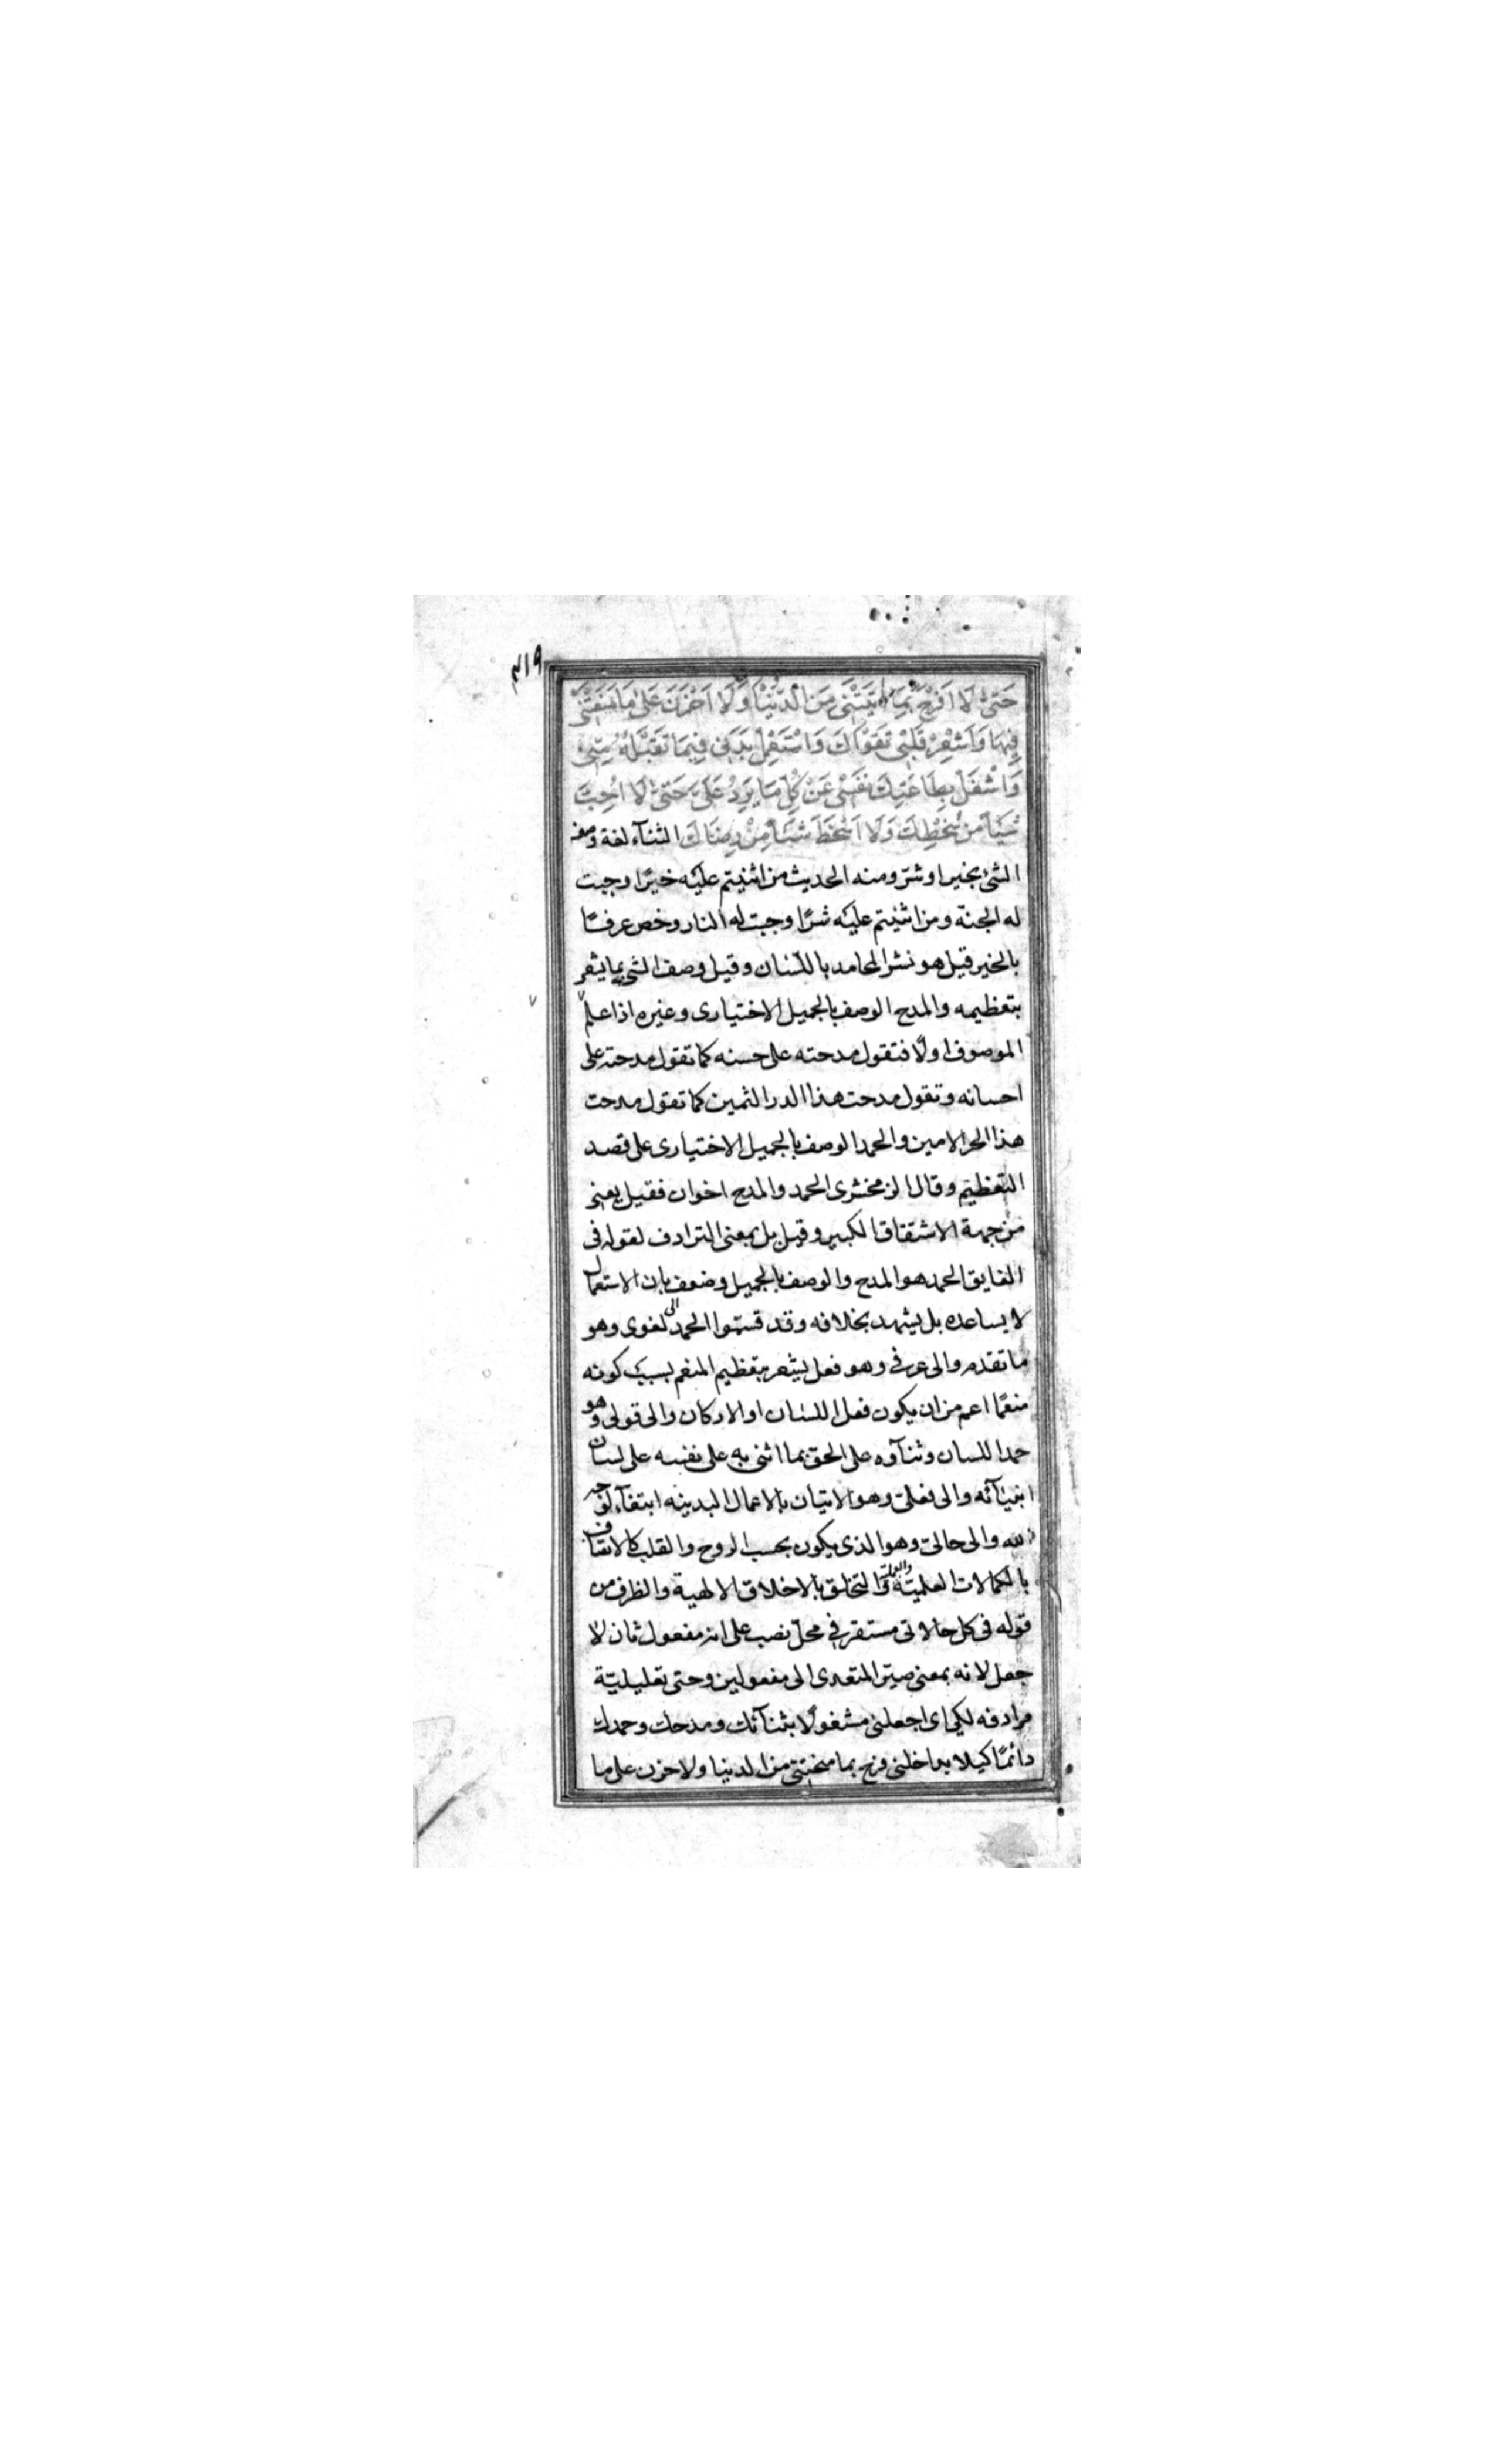 ٣١٩
حَتّىٰ لَا اَفْرَحَ بِمَا اٰتَيْتَنى مِنَ الدُّنْيَا وَلَا اَحْزَنَ عَلىٰ مَا مَنَعْتَنى
فِيهَا وَاَشْعِرْ قَلْبى تَقْوَاكَ وَاسْتَعْمِلْ بَدَنى فِيمَا تَقْبَلُهُ مِنّى
وَاشْغَلْ بِطَاعَتِكَ نَفْسى عَنْ كُلِّ مَا يَرِدُ عَلَىَّ حَتّىٰ لَا اُحِبَّ
شَيْئاً مِنْ سُخْطِكَ وَلَا اَسْخَطَ شَيْئاً مِنْ رِضَاكَ الثنآء لغة وصف
الشئ بخير او شرّ ومنه الحديث من اثنيتم عليه خيرًا وجبت
له الجنة ومن اثنيتم عليه شرًا وجبت له النار وخص عرفًا
بالخير قيل هو نشر المحامد باللّسان وقيل وصف الشئ بما يشعر
بتعظيمه والمدح الوصف بالجميل الاختيارى وغيره اذا علم
الموصوف اولًا فتقول مدحته على حسنه كما تقول مدحته على
احسانه وتقول مدحت هذا الدر الثمين كما تقول مدحت
هذا الحر الامين والحمد الوصف بالجميل الاختيارى على قصد
التعظيم وقال الزمخشرى الحمد والمدح اخوان فقيل يعنى
من جهة الاشتقاق الكبير وقيل بل بمعنى الترادف لقوله فى
الفايق الحمد هو المدح والوصف بالجميل وضعف بان الاستعمال
لا يساعده بل يشهد بخلافه وقد قسّموا الحمد الى لغوى وهو
ما تقدم والى عرفى وهو فعل يشعر بتعظيم المنعم بسبب كونه
منعمًا اعم من ان يكون فعل اللسان او الاركان والى قولى وهو
حمد اللسان وثنآؤه على الحق بما اثنى به على نفسه على لسان
انبيآئه والى فعلىّ وهو الاتيان بالاعمال البدنيه ابتغآء لوجه
الله والى حالىّ وهو الذى يكون بحسب الروح والقلب كالاتصاف
بالكمالات العلميّة والعمليّة والتخلق بالاخلاق الالهية والظرف من
قوله فى كل حالاتى مستقر فى محلّ نصب على انه مفعول ثان لا
جعل لانه بمعنى صيّر المتعدى الى مفعولين وحتى تعليليّة
مرادفه لكى اى اجعلنى مشغولًا بثنآئك ومدحك وحمدك
دائمًا كيلا يداخلنى فرح بما منحتنى من الدنيا ولا حزن على ما